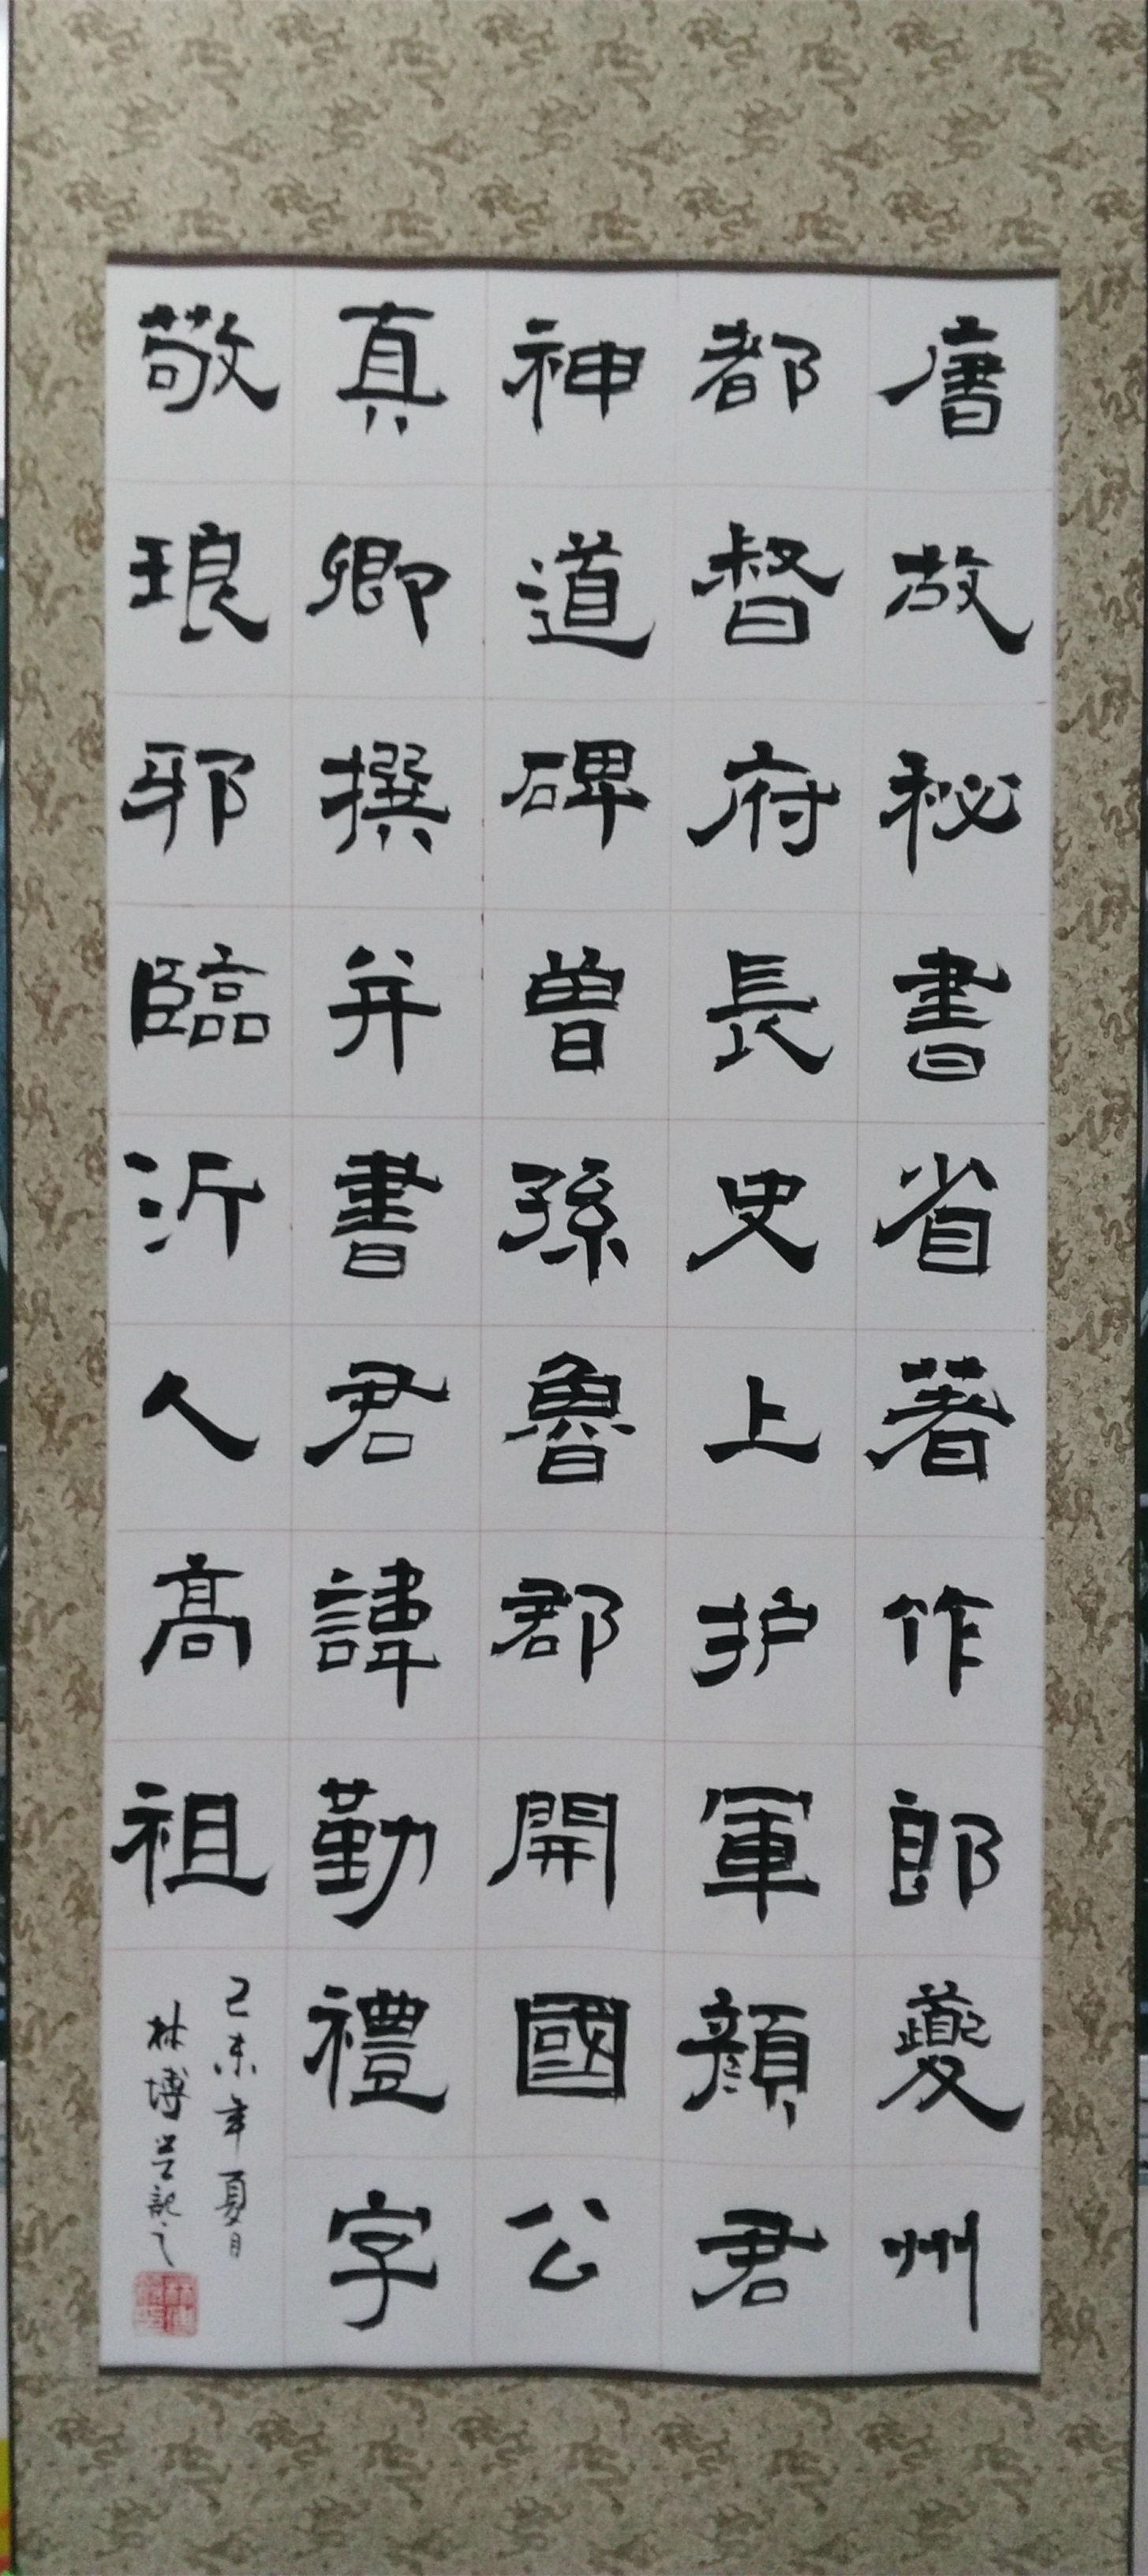 唐故秘書省著作郎夔州
都督府長史上护軍顏君
神道碑曾孫魯郡開國公
真卿撰并書君諱勤禮字
敬琅邪臨沂人高祖
己未年夏月
林博
記之